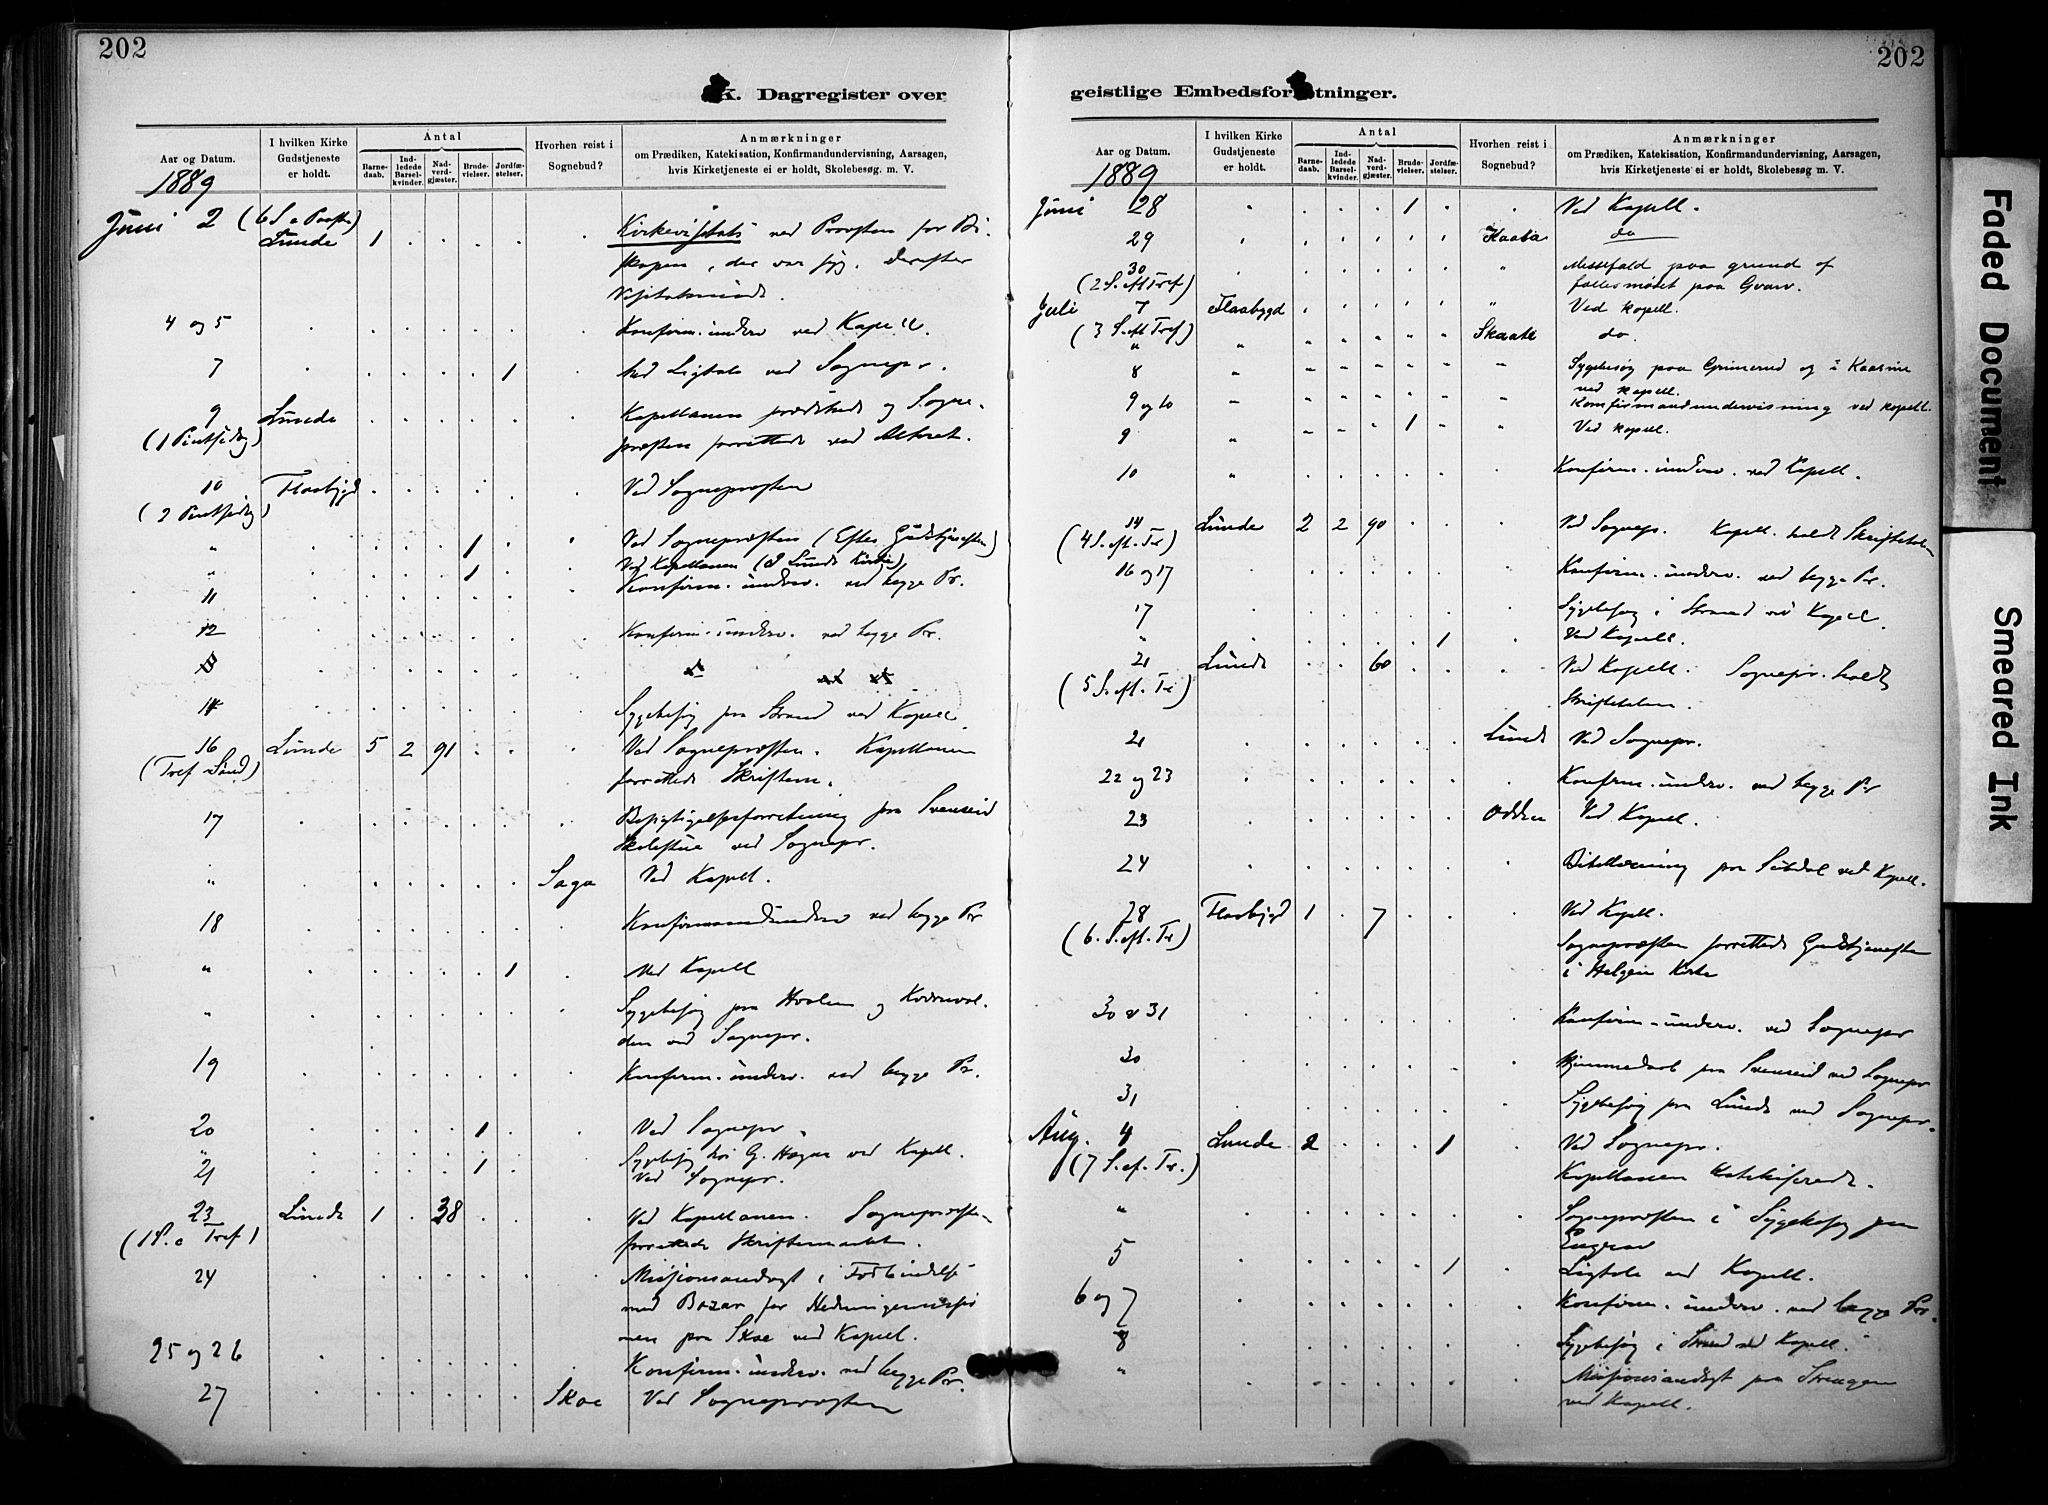 202
K. Dagregister over
Aar og Datum.
I hvilken Kirke Gudstjeneste er holdt.
Antal
Barne-daab.
Ind-ledede Barsel-kvinder.
Nad-verd-gjæster.
Brude-vielser.
Jordfæ-stelser.
Hvorhen reist i Sognebud?
Anmærkninger
om Prædiken, Katekisation, Konfirmandundervisning, Aarsagen,
hvis Kirketjeneste ei er holdt, Skolebesøg. m. V.
1889
Juni 2 (6 S. e Paaske) Lunde 1 Kirkevisitats ved Provsten for Bi-
skopen, der var syg. Derefter
Visitatsmøde.
4 og 5 Konfirm. underv. ved Kapell.
7 1 Ligtale ved Sognepr.
9 Lunde Kapellanen prædikede og Sogne-
(1 Pintsedag) præsten forrettede ved Alteret.
10 Flaabygd Ved Sognepræsten
(2 Pintsedag)
" 1 Ved Sognepræsten (Efter Gudstjenesten)
" 1 Ved Kapellanen (I Lunde Kirke)
11 Konfirm. underv. ved begge Pr.
12 Konfirm. underv. ved begge Pr.
14 Sygebesøg paa Strand ved Kapell.
16 Lunde 5 2 91 Ved Sognepræsten. Kapellanen
(Tref Sønd) forrettede Skriftem.
17 Besigtigelsesforretning paa Svenseid
Skolestue ved Sognepr.
" Saga Ved Kapell.
18 Konfirmandunderv ved begge Pr
" 1 Ved Kapell
" Sygebesøg paa Hvalen og
den ved Sognepr.
19 Konfirm. underv. ved begge Pr.
20 1 Ved Sognepr.
" Sygebesøg hos G. Hagen ved Kapell.
21 1 Ved Sognepr.
23 Lunde 1 38 Ved Kapellanen. Sognepræsten
(1 S. e Tref) forrettede Skriftemaalet.
24 Missionsandagt i Forbindelse
med Bazar for Hedningemissio
nen paa Skoe ved Kapell.
25 og 26 Konfirm. underv. ved begge Pr.
27 Skoe Ved Sognepræsten
202
geistlige Embedsforretninger.
Aar og Datum.
I hvilken Kirke Gudstjeneste er holdt.
Antal
Barne-daab.
Ind-ledede Barsel-kvinder.
Nad-verd-gjæster.
Brude-vielser.
Jordfæ-stelser.
Hvorhen reist i Sognebud?
Anmærkninger
om Prædiken, Katekisation, Konfirmandundervisning, Aarsagen,
hvis Kirketjeneste ei er holdt, Skolebesøg m. V.
1889
Juni 28 1 Ved Kapell.
29 Kaasa do
30 Messefald paa grund af
(2 S. eft Tref) fællesmødet paa Gvarv.
Juli 7 Flaabygd Ved kapell.
(3 S. eft Tref)
" " Skaate do.
8 " Sygebesøg paa Grimerud og i Kaasine
ved kapell.
9 og 10 Konfirmandundervisning ved kapell.
9 " 1 Ved kapell.
10 " Konfirm. underv. ved Kapell.
14 Lunde 2 2 90 Ved Sognep. Kapell. holdt Skriftetalen
(4 S. eft. Tr)
16 og 17 Konfirm. underv. ved begge Pr.
17 Sygebesøg i Strand ved Kapell.
" 1 Ved Kapell.
21 Lunde 60 Ved Kapell. Sognepr. holdt
(5 S. eft. Tr) Skriftetalen.
21 Lunde Ved Sognepr.
22 og 23 Konfirm. underv. ved begge Pr
23 Odden Ved Kapell.
24 Bibellæsning paa Søbdal ved Kapell.
28 Flaabygd 1 7 Ved Kapell.
(6. S. eft. Tr) Sognepræsten forrettede Gudstjenesten
i Helgen Kirke
30 & 31 Konfirm. underv. ved Sognepr
30 Hjemmedaab paa Svenseid ved Sognepr
31 Sygebesøg paa Lunde ved Sognepr.
Aug. 4 Lunde 2 1 Ved Sognepr.
(7 S. ef. Tr.) Kapellanen katekiserede.
" Sognepræsten i Sygebesøg paa
5 1 Ligtale ved Kapell.
6 og 7 Konfirm. underv. ved begge Pr.
8 Sygebesøg i Strand ved Kapell.
" Missionsandagt paa Strengen
ved Kapell.
Faded Document
Smeared Ink